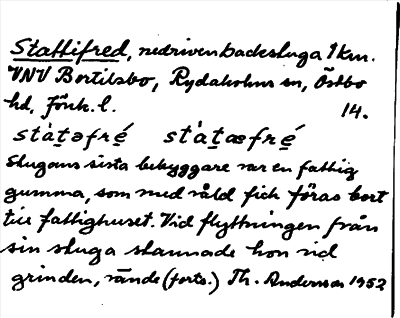 Stattifred, nedriven backstuga 1 km.
VNV Bortilsbo, Rydaholms sn, Östbo
hd, Jönk. l. 14.
Stugans sista bebyggare var en fattig
gumma, som med våld fick föras bort
till fattighuset. Vid flyttningen från
sin stuga stannade hon vid
grinden, vände (forts.) Th. Andersson 1952